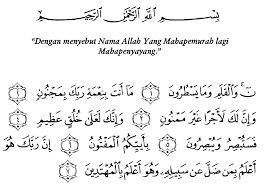 بِسْمِ اللَّهِ الرَّحْمَٰنِ الرَّحِيمِ
“Dengan menyebut Nama Allah Yang Mahapemurah lagi
Mahapenyayang.”
نٓ ۚ وَالْقَلَمِ وَمَا يَسْطُرُونَ ۝١ مَا أَنتَ بِنِعْمَةِ رَبِّكَ بِمَجْنُونٍ ۝٢
وَإِنَّ لَكَ لَأَجْرًا غَيْرَ مَمْنُونٍ ۝٣ وَإِنَّكَ لَعَلَىٰ خُلُقٍ عَظِيمٍ ۝٤
فَسَتُبْصِرُ وَيُبْصِرُونَ ۝٥ بِأَييِّكُمُ الْمَفْتُونُ ۝٦ إِنَّ رَبَّكَ هُوَ
أَعْلَمُ بِمَن ضَلَّ عَن سَبِيلِهِ وَهُوَ أَعْلَمُ بِالْمُهْتَدِينَ ۝٧